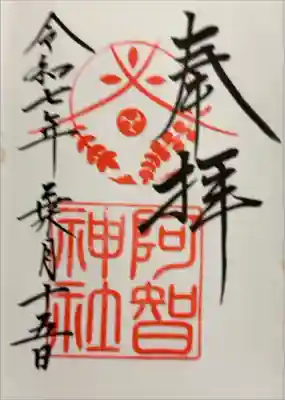 奉拝
阿智
神社
令和七年 葉月十五日